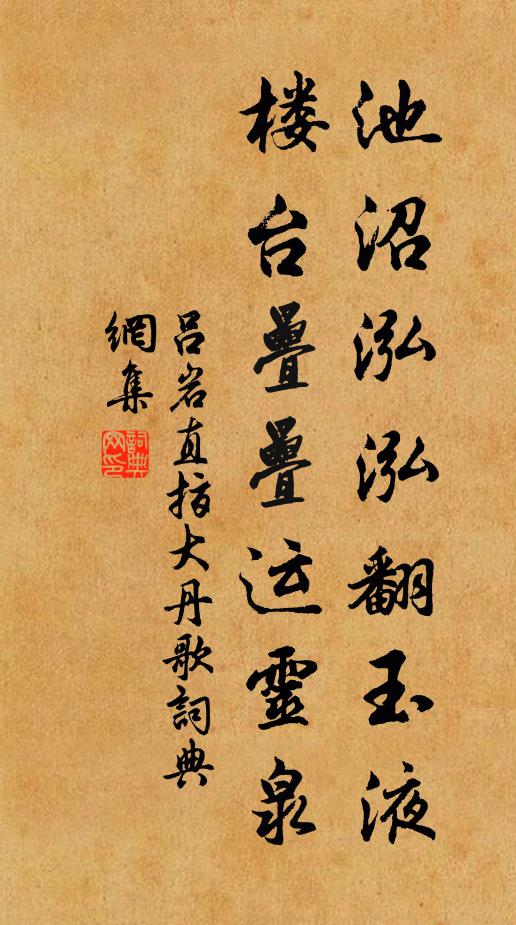 池沼泓泓翻玉液
楼台疊疊运靈泉
吕岩直指大丹歌詞典
網集
詞典
网印